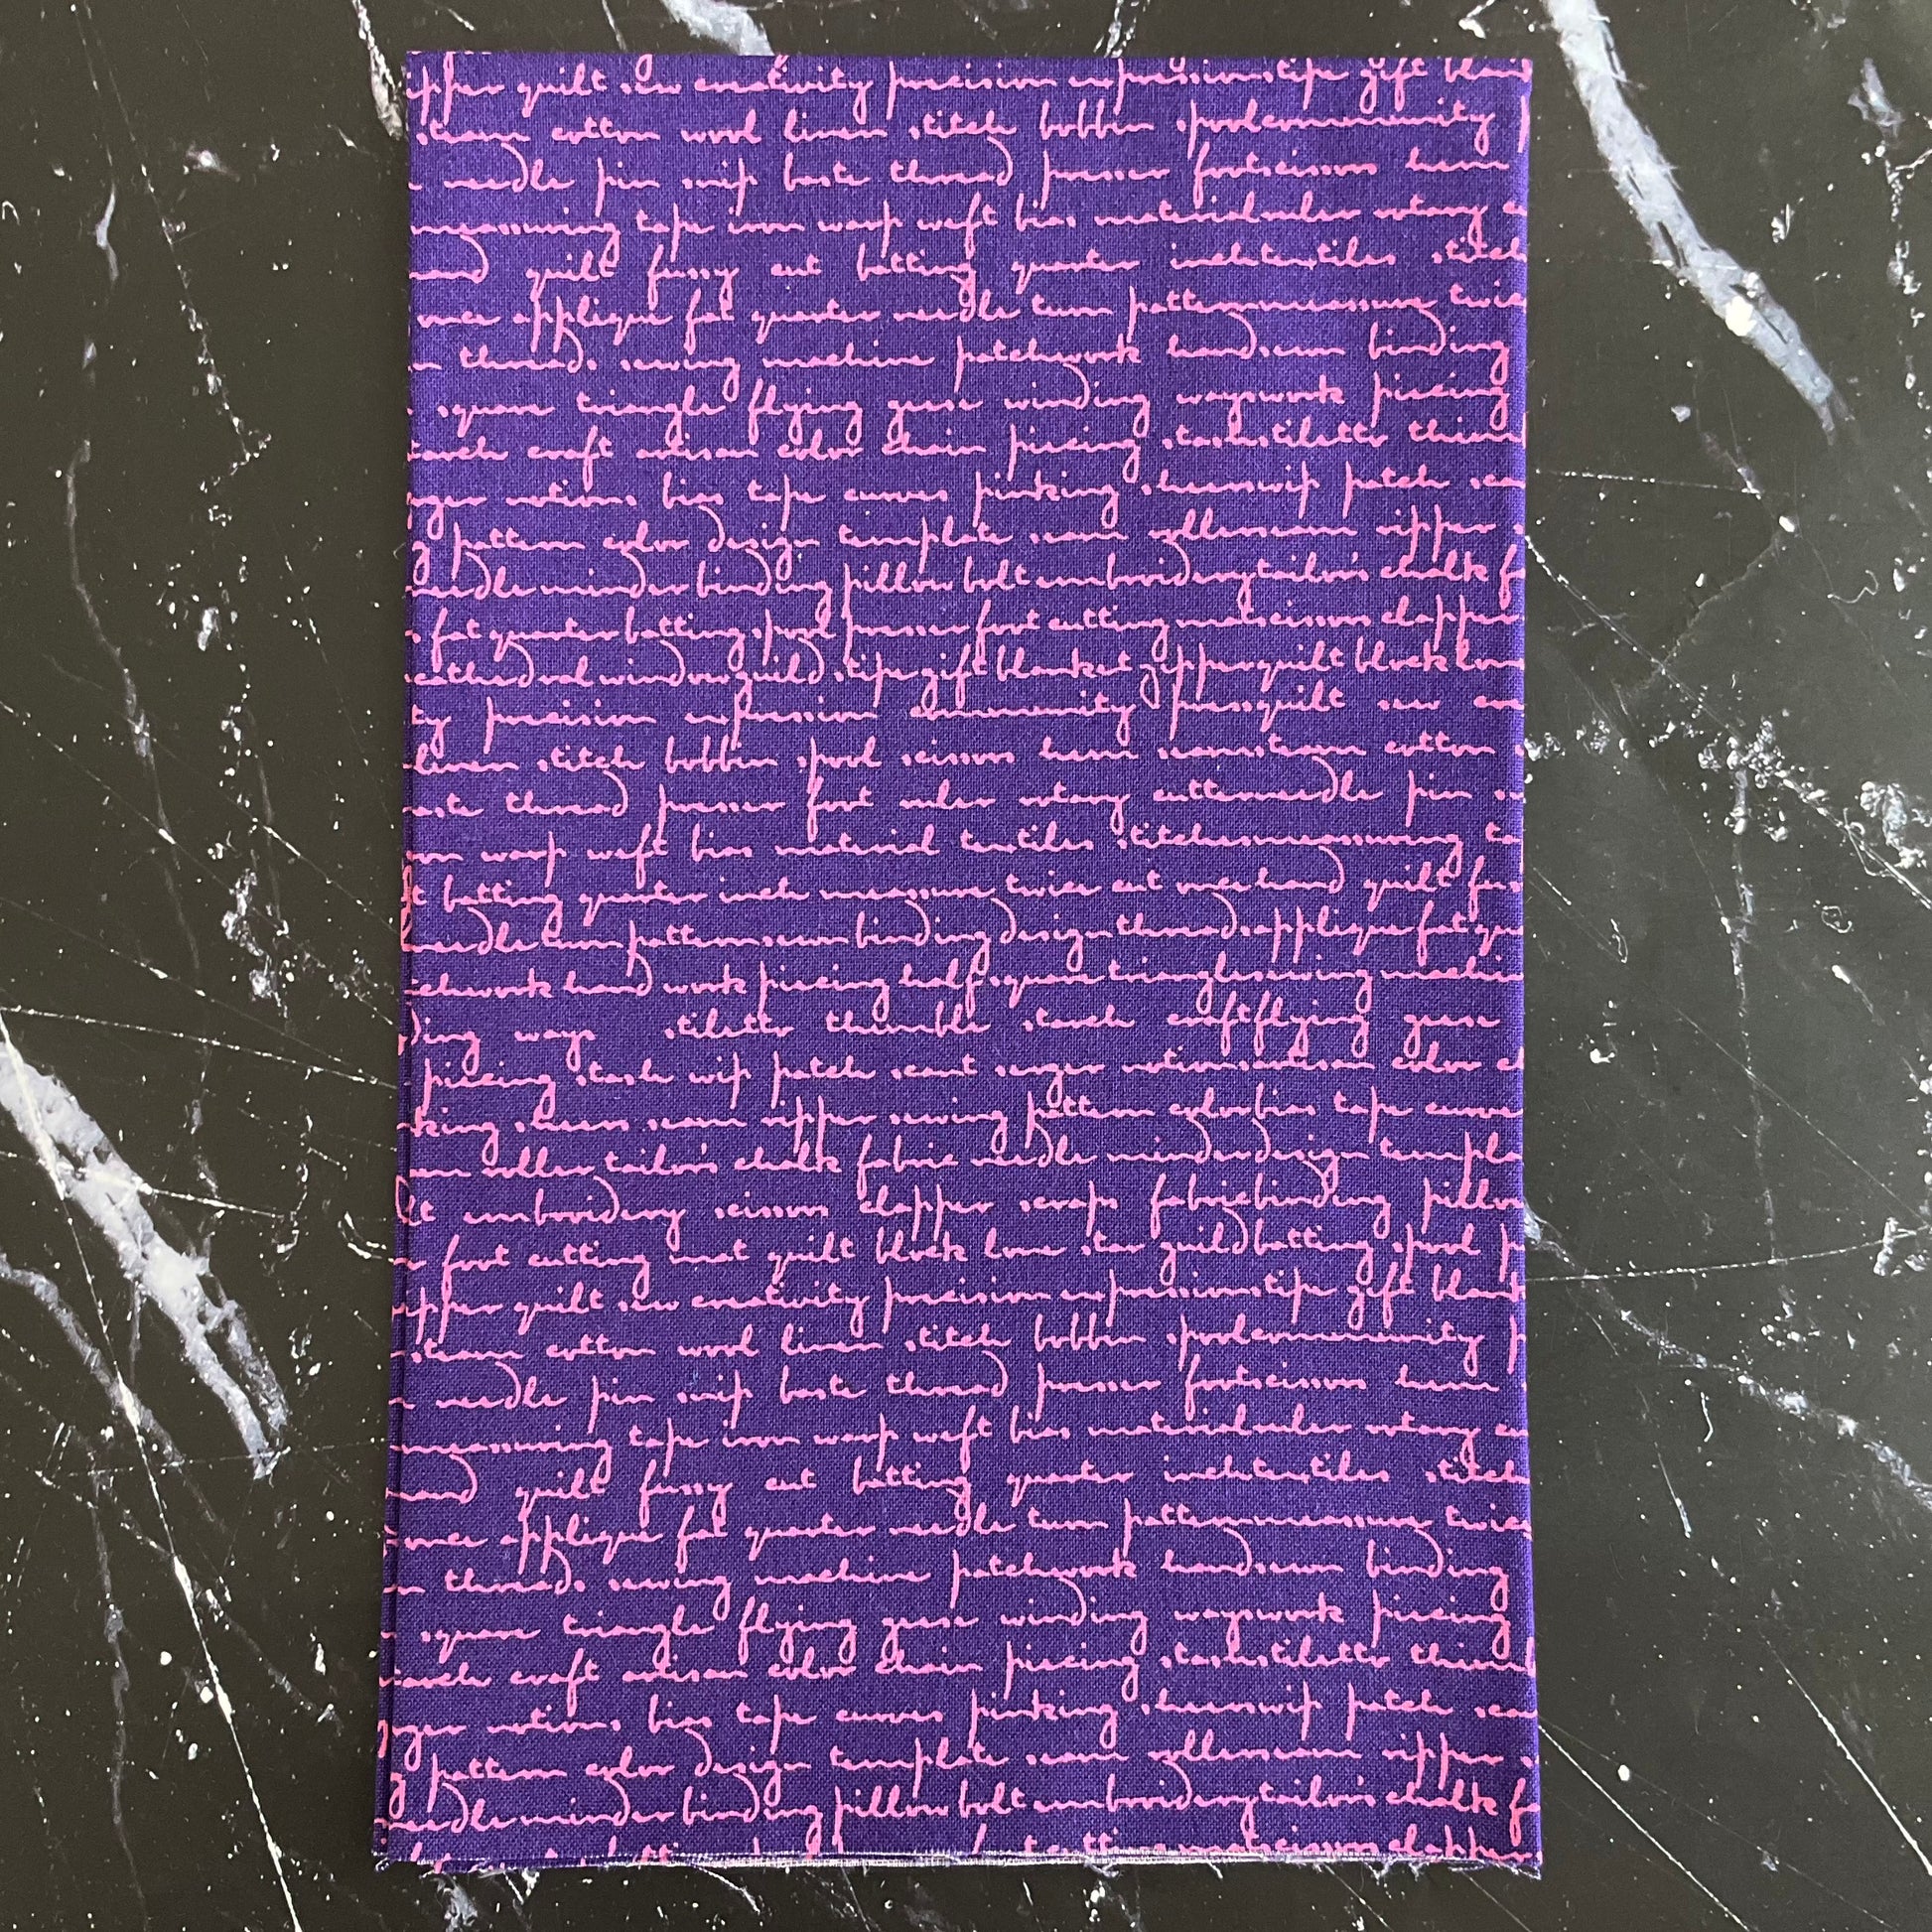 quilt sew creativity precision expression tips gift
steam cotton wool linen stitch bobbin spool community
needle pin snip baste thread presser foot scissors hem
measuring tape iron warp weft bias material ruler rotary
hand quilt fussy cut batting quarter inch textiles stitch
once applique fat quarter needle turn pattern measure twice
threads sewing machine patchwork hand sewn binding
square triangle flying geese winding ways work piecing
craft artisan color chain piecing stash stiletto
notions bias tape curves pinking shears wip patch
pattern color design template seam roller seam ripper
needle minder binding pillow bolt embroidery tailor's chalk
fat quarter batting spool presser foot cutting mat scissors clapper
cathedral window guild tips gift blanket zipper quilt block
precision expression community press quilt sew
linen stitch bobbin spool scissors hem seam steam cotton
thread presser foot ruler rotary cutter needle pin
warp weft bias material textiles stitches measuring
batting quarter inch measure twice cut once hand quilt
needle turn pattern sewn binding design threads applique fat
hand work piecing half square triangle sewing
ways stiletto thimble starch craft flying geese
piecing stash wip patch scant notions artisan color
shears seam ripper sewing pattern color bias tape
roller tailor's chalk fabric needle minder design
embroidery scissors clapper scraps fabric binding
foot cutting mat quilt block lone star guild batting spool
quilt sew creativity precision expression tips gift
steam cotton wool linen stitch bobbin spool community
needle pin snip baste thread presser foot scissors hem
measuring tape iron warp weft bias material ruler rotary
hand quilt fussy cut batting quarter inch textiles stitch
once applique fat quarter needle turn pattern measure twice
threads sewing machine patchwork hand sewn binding
square triangle flying geese winding ways work piecing
craft artisan color chain piecing stash stiletto
notions bias tape curves pinking shears wip patch
pattern color design template seam roller seam ripper
needle minder binding pillow bolt embroidery tailor's chalk
cutting mat scissors clapper